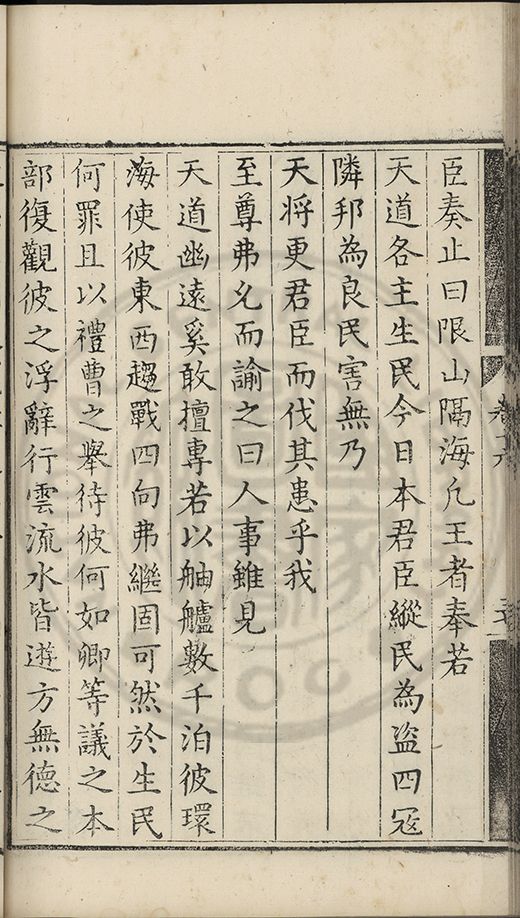 臣奏止曰限山隔海凢王者奉若
天道各主生民今日本君臣縱民為盗四冦
隣邦為良民害無乃
天将更君臣而伐其患乎我
至尊弗允而諭之曰人事雖見
天道幽遠奚敢擅專若以舳艫數千泊彼環
海使彼東西趨戰四向弗繼固可然於生民
何罪且以禮曹之舉待彼何如卿等議之本
部復觀彼之浮辭行雲流水皆逰方無德之